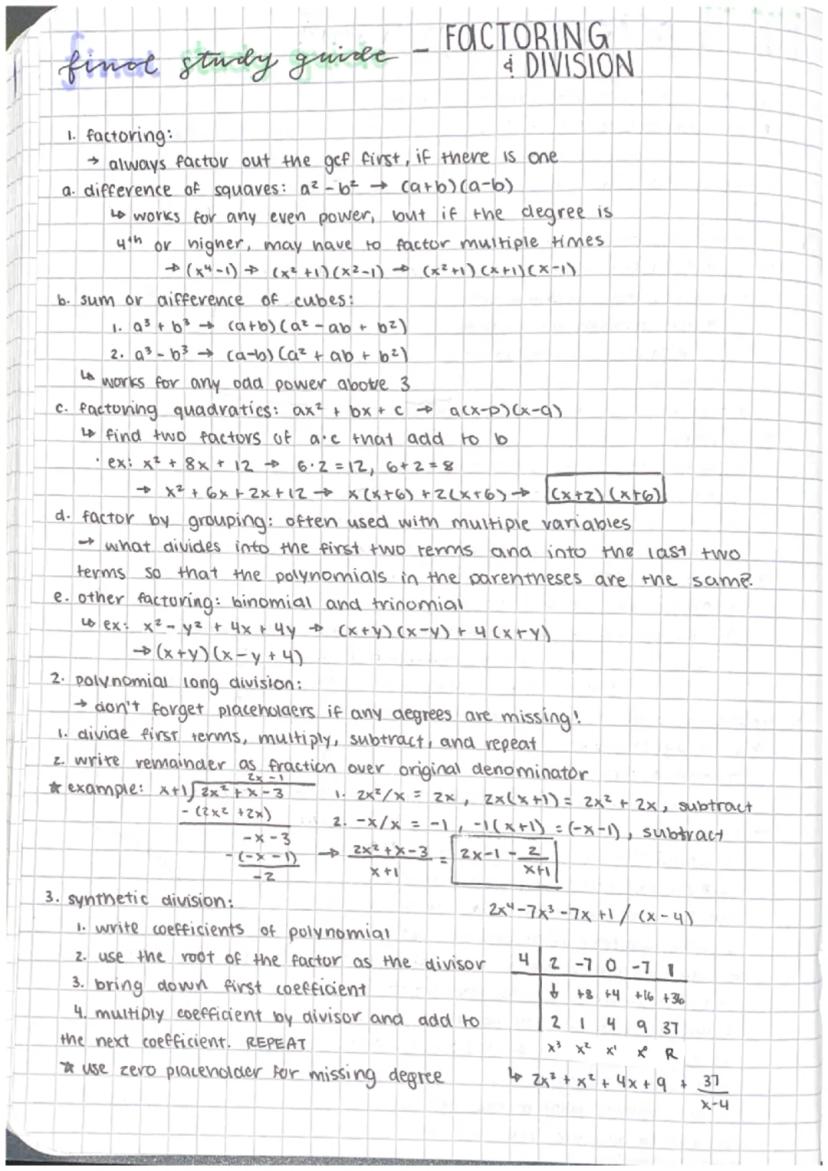 final study guide - FACTORING
& DIVISION
1. factoring:
→ always factor out the gcf first, if there is one
a. difference of squares: a² - b² → (a+b)(a-b)
↳ works for any even power, but if the degree is
4th or higher, may have to factor multiple times
→ (x⁴-1) → (x²+1)(x²-1) → (x²+1)(x+1)(x-1)
b. sum or difference of cubes:
1. a³ + b³ → (a+b)(a² - ab + b²)
2. a³ - b³ → (a-b)(a² + ab + b²)
↳ works for any odd power above 3
c. factoring quadratics: ax² + bx + c → a(x-p)(x-q)
↳ find two factors of a·c that add to b
· ex: x² + 8x + 12 → 6·2=12, 6+2=8
→ x² + 6x + 2x + 12 → x(x+6) + 2(x+6) → (x+2)(x+6)
d. factor by grouping: often used with multiple variables
→ what divides into the first two terms and into the last two
terms so that the polynomials in the parentheses are the same?
e. other factoring: binomial and trinomial
↳ ex: x² - y² + 4x + 4y → (x+y)(x-y) + 4(x+y)
→ (x+y)(x-y+4)
2. polynomial long division:
→ don't forget placeholders if any degrees are missing!
1. divide first terms, multiply, subtract, and repeat
2. write remainder as fraction over original denominator
2x-1
☆ example: x+1 √2x² + x - 3 1. 2x²/x = 2x, 2x(x+1) = 2x² + 2x, subtract
-(2x² + 2x) 2. -x/x = -1, -1(x+1) = (-x-1), subtract
-x-3
-(-x-1) → 2x²+x-3 / x+1 = 2x-1 - 2/x+1
-2
3. synthetic division: 2x⁴-7x³-7x+1 / (x-4)
1. write coefficients of polynomial
2. use the root of the factor as the divisor 4 | 2 -7 0 -7 1
3. bring down first coefficient ↓ +8 +4 +16 +36
4. multiply coefficient by divisor and add to 2 1 4 9 37
the next coefficient. REPEAT x³ x² x¹ x⁰ R
☆ use zero placeholder for missing degree ↳ 2x³ + x² + 4x + 9 + 37/x-4